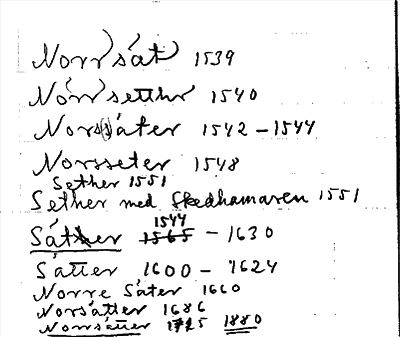 Norrsät 1539
Norrsetthr 1540
Nors(s)äter 1542 - 1544
Norsseter 1548
Sether 1551
Sether med Skedhamaren 1551
1544
Säther 1565 - 1630
Sätter 1600 - 1624
Norre Säter 1660
Norsätter 1686
Norrsätter 1725 1880